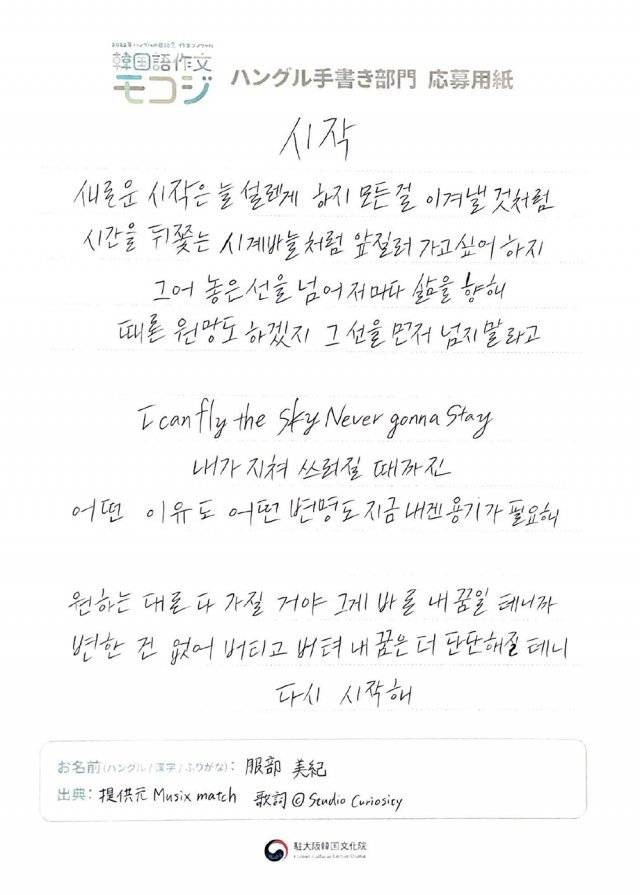 韓国語作文
モコジ
ハングル手書き部門 応募用紙
시작
새로운 시작은 늘 설레게 하지 모든걸 이겨낼 것처럼
시간을 뒤쫓는 시계바늘처럼 앞질러 가고싶어 하지
그어 놓은 선을 넘어 저마다 삶을 향해
때론 원망도 하겠지 그 선을 먼저 넘지 말라고
I can fly the sky Never gonna stay
내가 지쳐 쓰러질 때까진
어떤 이유도 어떤 변명도 지금 내겐 용기가 필요해
원하는 대로 다 가질 거야 그게 바로 내 꿈일 테니까
변한 건 없어 버티고 버텨 내 꿈은 더 단단해질 테니
다시 시작해
お名前(ハングル / 漢字 / ふりがな): 服部 美紀
出典: 提供元 Musix match 歌詞 © Studio Curiosity
駐大阪韓国文化院
Korean Cultural Center Osaka